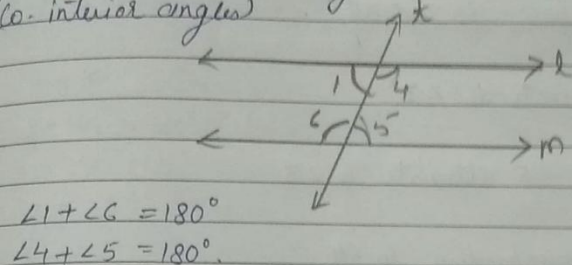 Co. interior angles)
t
l
1 4
6 5
m
∠1+∠6 = 180°
∠4+∠5 = 180°.